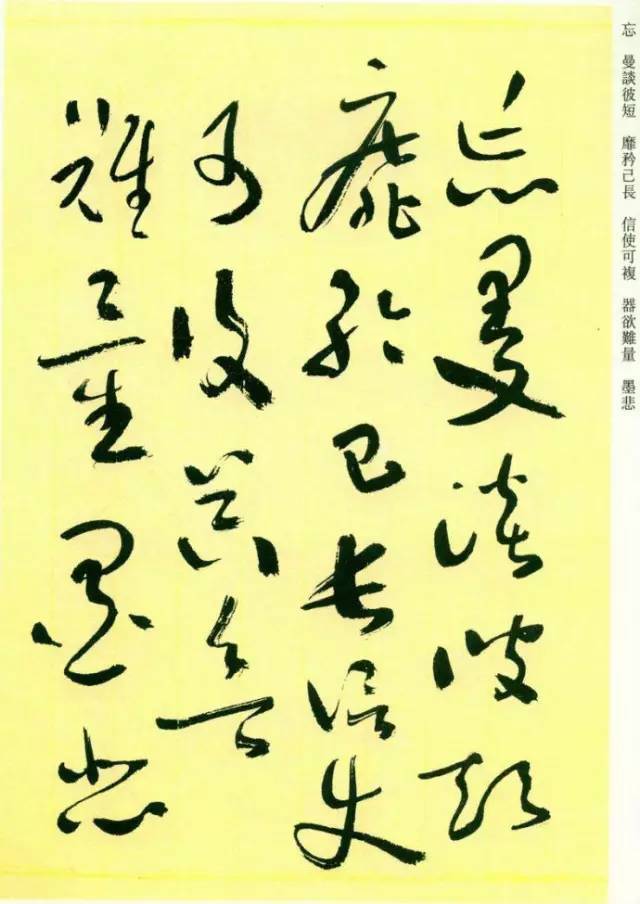 忘 曼談彼短 靡矜己長 信使可複 器欲難量 墨悲
忘曼談彼短
靡矜己長信使
可復器欲
難量墨悲